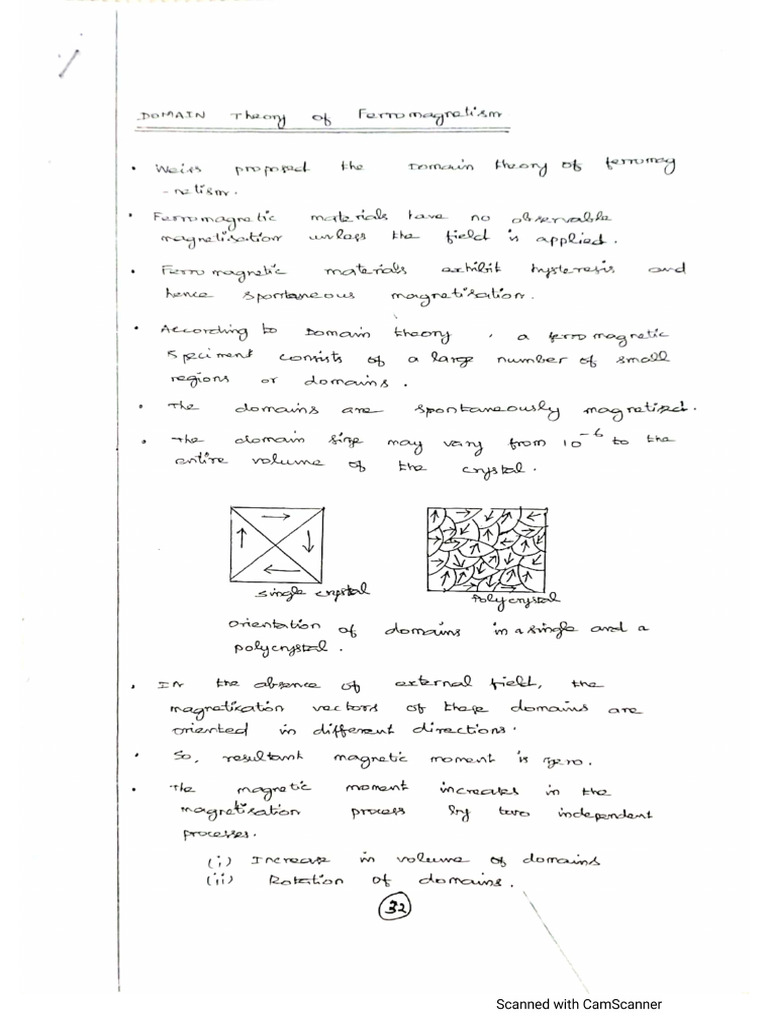 DOMAIN Theory of Ferromagnetism
• Weiss proposed the Domain theory of ferromag
-netism.
• Ferromagnetic materials have no observable
magnetisation unless the field is applied.
• Ferro magnetic materials exhibit hysteresis and
hence spontaneous magnetisation.
• According to Domain theory, a ferro magnetic
speciment consists of a large number of small
regions or domains.
• The domains are spontaneously magnetised.
• The domain size may vary from 10⁻⁶ to the
entire volume of the crystal.
single crystal
Polycrystal
orientation of domains in a single and a
polycrystal.
• In the absence of external field, the
magnetization vectors of these domains are
oriented in different directions.
• So, resultant magnetic moment is zero.
• The magnetic moment increases in the
magnetisation process by two independent
processes.
(i) Increase in volume of domains
(ii) Rotation of domains.
32
Scanned with CamScanner